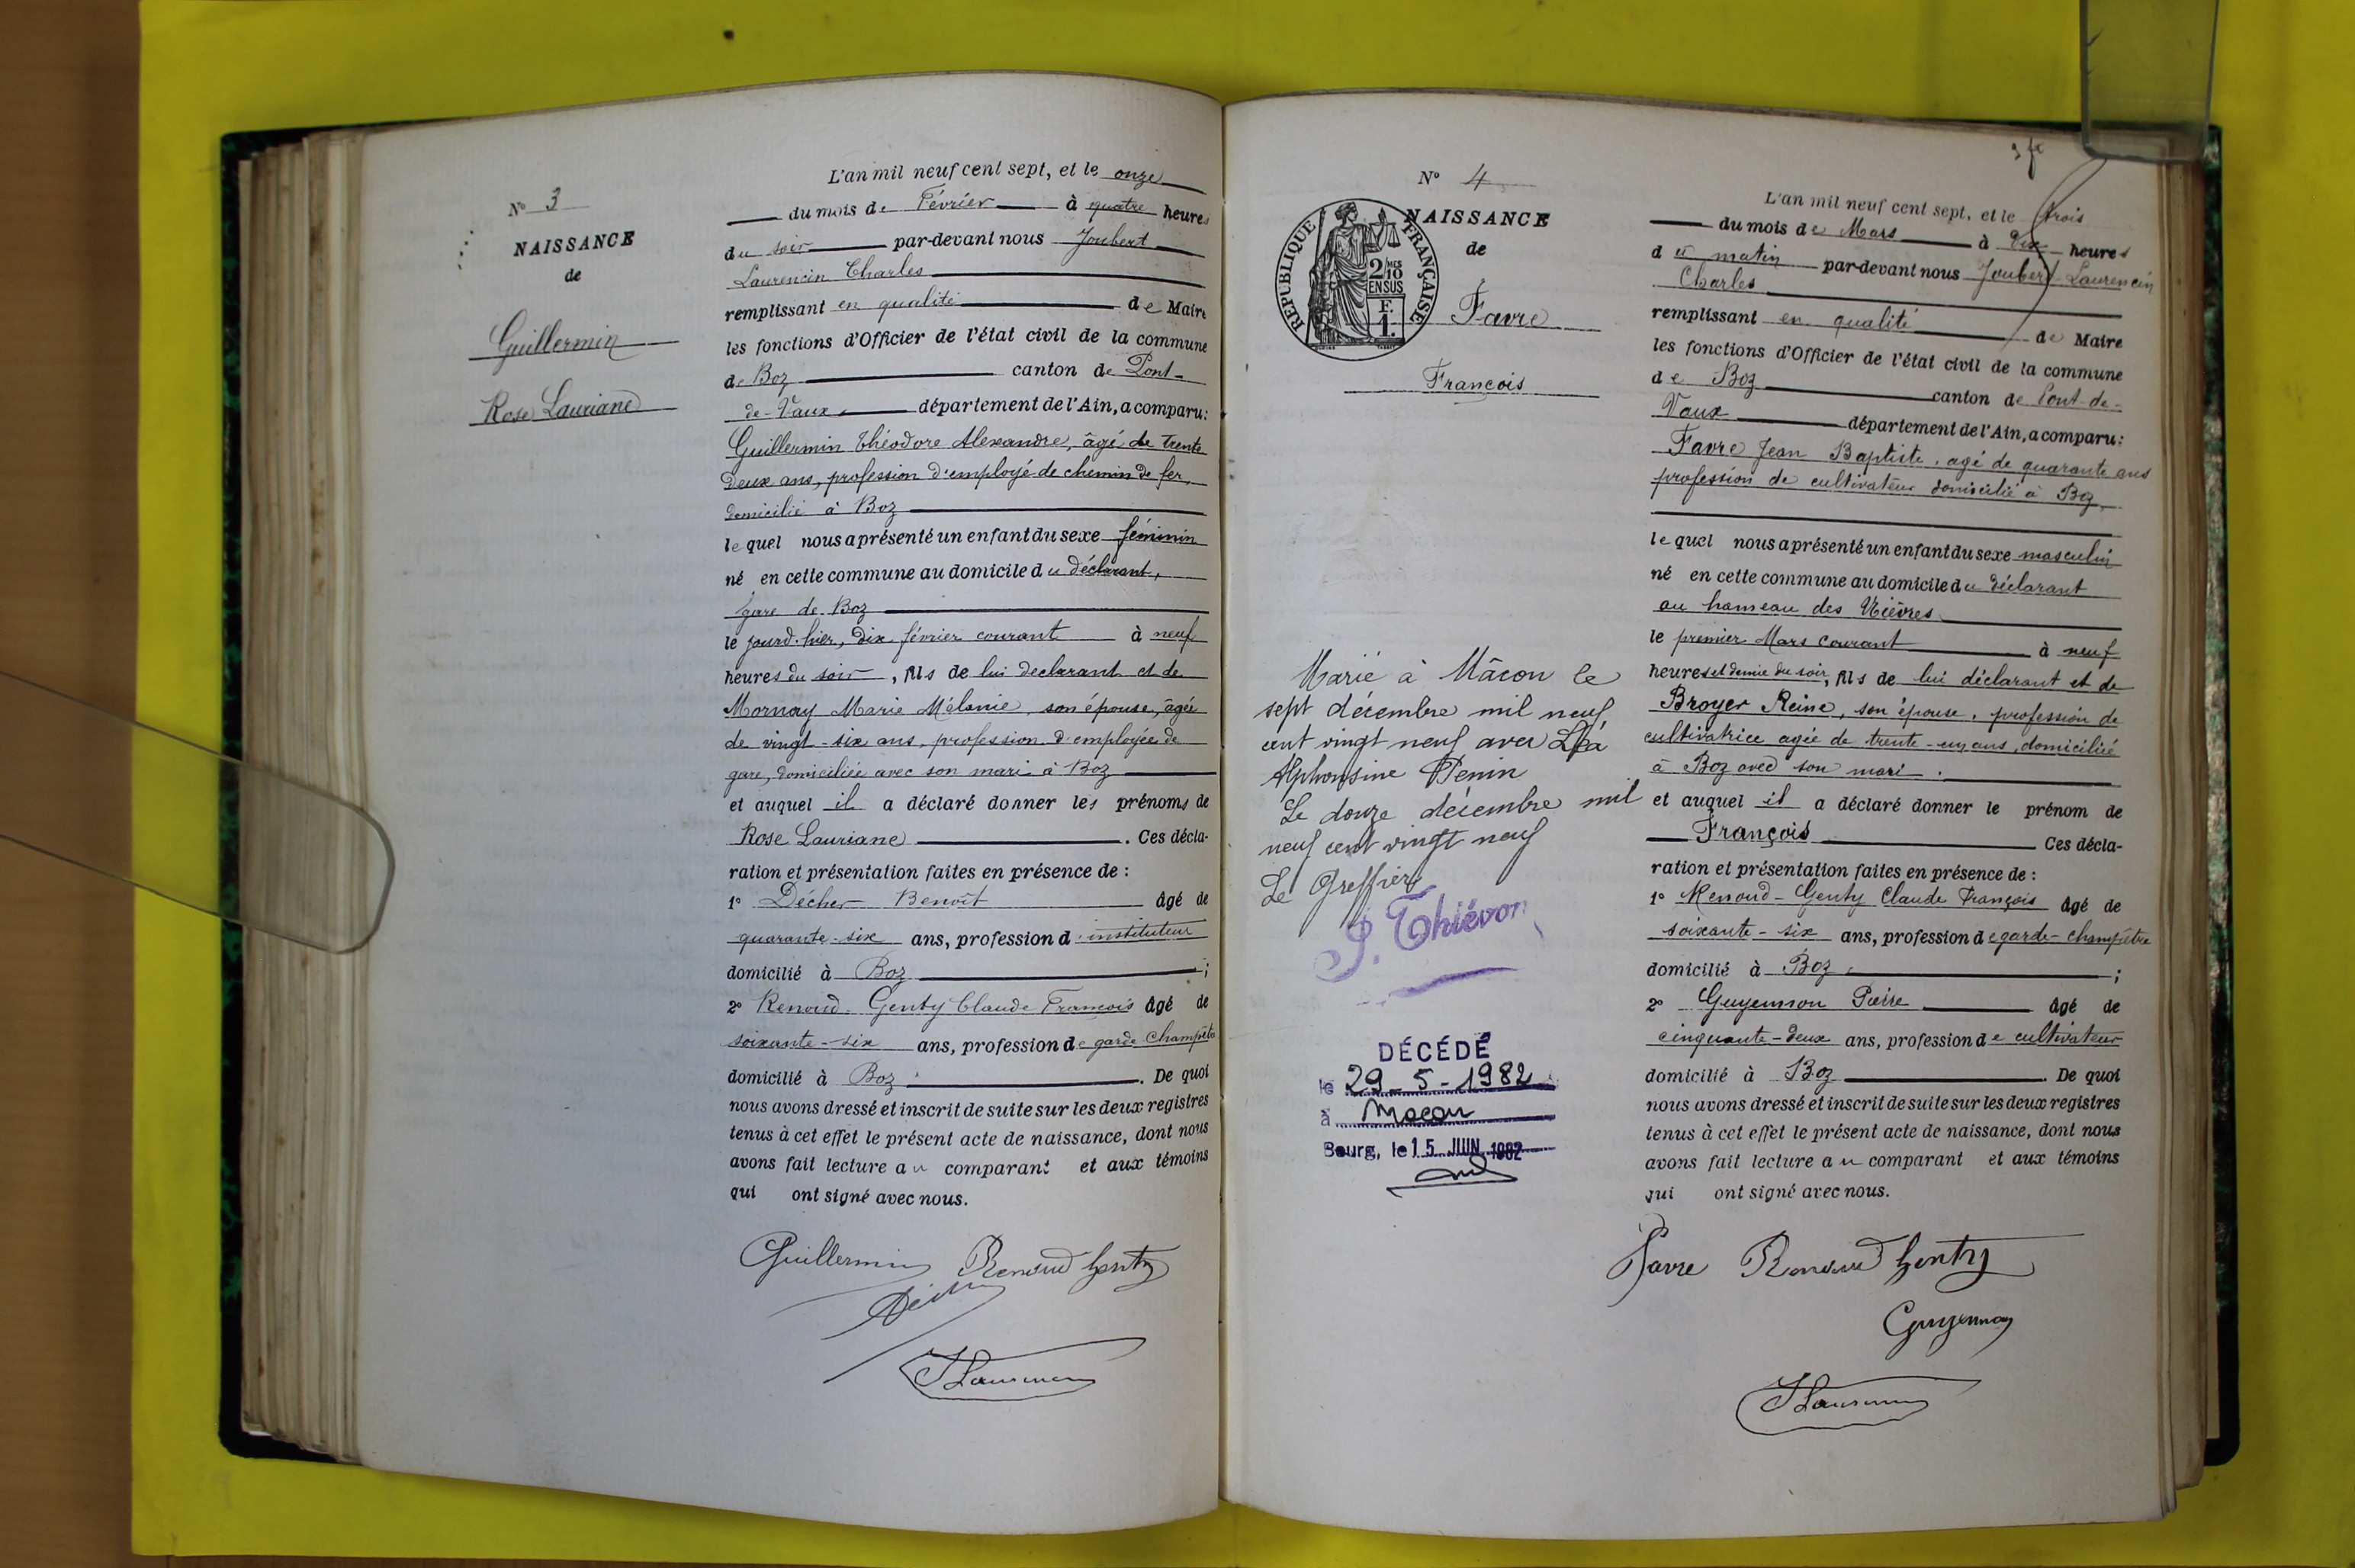 N° 3
NAISSANCE
de
Guillermin
Rose Lauriane
L'an mil neuf cent sept, et le onze
du mois de Février à quatre heures
du soir par-devant nous Joubert
Laurencin Charles
remplissant en qualité de Maire
les fonctions d'Officier de l'état civil de la commune
de Boz canton de Pont-
de-Vaux département de l'Ain, a comparu:
Guillermin Théodore Alexandre, âgé de trente
deux ans, profession d'employé de chemin de fer,
domicilié à Boz
lequel nous a présenté un enfant du sexe féminin
né en cette commune au domicile du déclarant,
gare de Boz
le jourd'hier, dix février courant à neuf
heures du soir, fils de lui déclarant et de
Mornay Marie Mélanie, son épouse, âgée
de vingt-six ans, profession d'employée de
gare, domiciliée avec son mari à Boz
et auquel il a déclaré donner les prénoms de
Rose Lauriane. Ces décla-
ration et présentation faites en présence de :
1° Décher Benoît âgé de
quarante-six ans, profession d'instituteur
domicilié à Boz ;
2° Renoud-Genty Claude François âgé de
soixante-six ans, profession de garde champêtre
domicilié à Boz. De quoi
nous avons dressé et inscrit de suite sur les deux registres
tenus à cet effet le présent acte de naissance, dont nous
avons fait lecture au comparant et aux témoins
qui ont signé avec nous.
Guillermin Renoud Genty
JLaurencin
N° 4
NAISSANCE
de
RÉPUBLIQUE FRANÇAISE
2/10 MES
EN SUS
F.
1.
Favre
François
Marié à Mâcon le
sept décembre mil neuf
cent vingt neuf avec Léa
Alphonsine Penin
Le douze décembre mil
neuf cent vingt neuf
Le Greffier
J. Thiévon
DÉCÉDÉ
le 29-5-1982
à Macon
Bourg, le 15 JUIN 1982
L'an mil neuf cent sept, et le trois
du mois de Mars à dix heures
du matin par-devant nous Joubert Laurencin
Charles
remplissant en qualité de Maire
les fonctions d'Officier de l'état civil de la commune
de Boz canton de Pont-de-
Vaux département de l'Ain, a comparu:
Favre Jean Baptiste, agé de quarante ans
profession de cultivateur domicilié à Boz,
lequel nous a présenté un enfant du sexe masculin
né en cette commune au domicile du déclarant
au hameau des
le premier Mars courant à neuf
heures et demie du soir, fils de lui déclarant et de
Broyer Reine, son épouse, profession de
cultivatrice agée de trente-un ans, domiciliée
à Boz avec son mari.
et auquel il a déclaré donner le prénom de
François Ces décla-
ration et présentation faites en présence de :
1° Renoud-Genty Claude François âgé de
soixante-six ans, profession de garde-champêtre
domicilié à Boz ;
2° Guyennon Pierre âgé de
cinquante-deux ans, profession de cultivateur
domicilié à Boz. De quoi
nous avons dressé et inscrit de suite sur les deux registres
tenus à cet effet le présent acte de naissance, dont nous
avons fait lecture au comparant et aux témoins
qui ont signé avec nous.
Favre Renoud Genty
Guyennon
JLaurencin